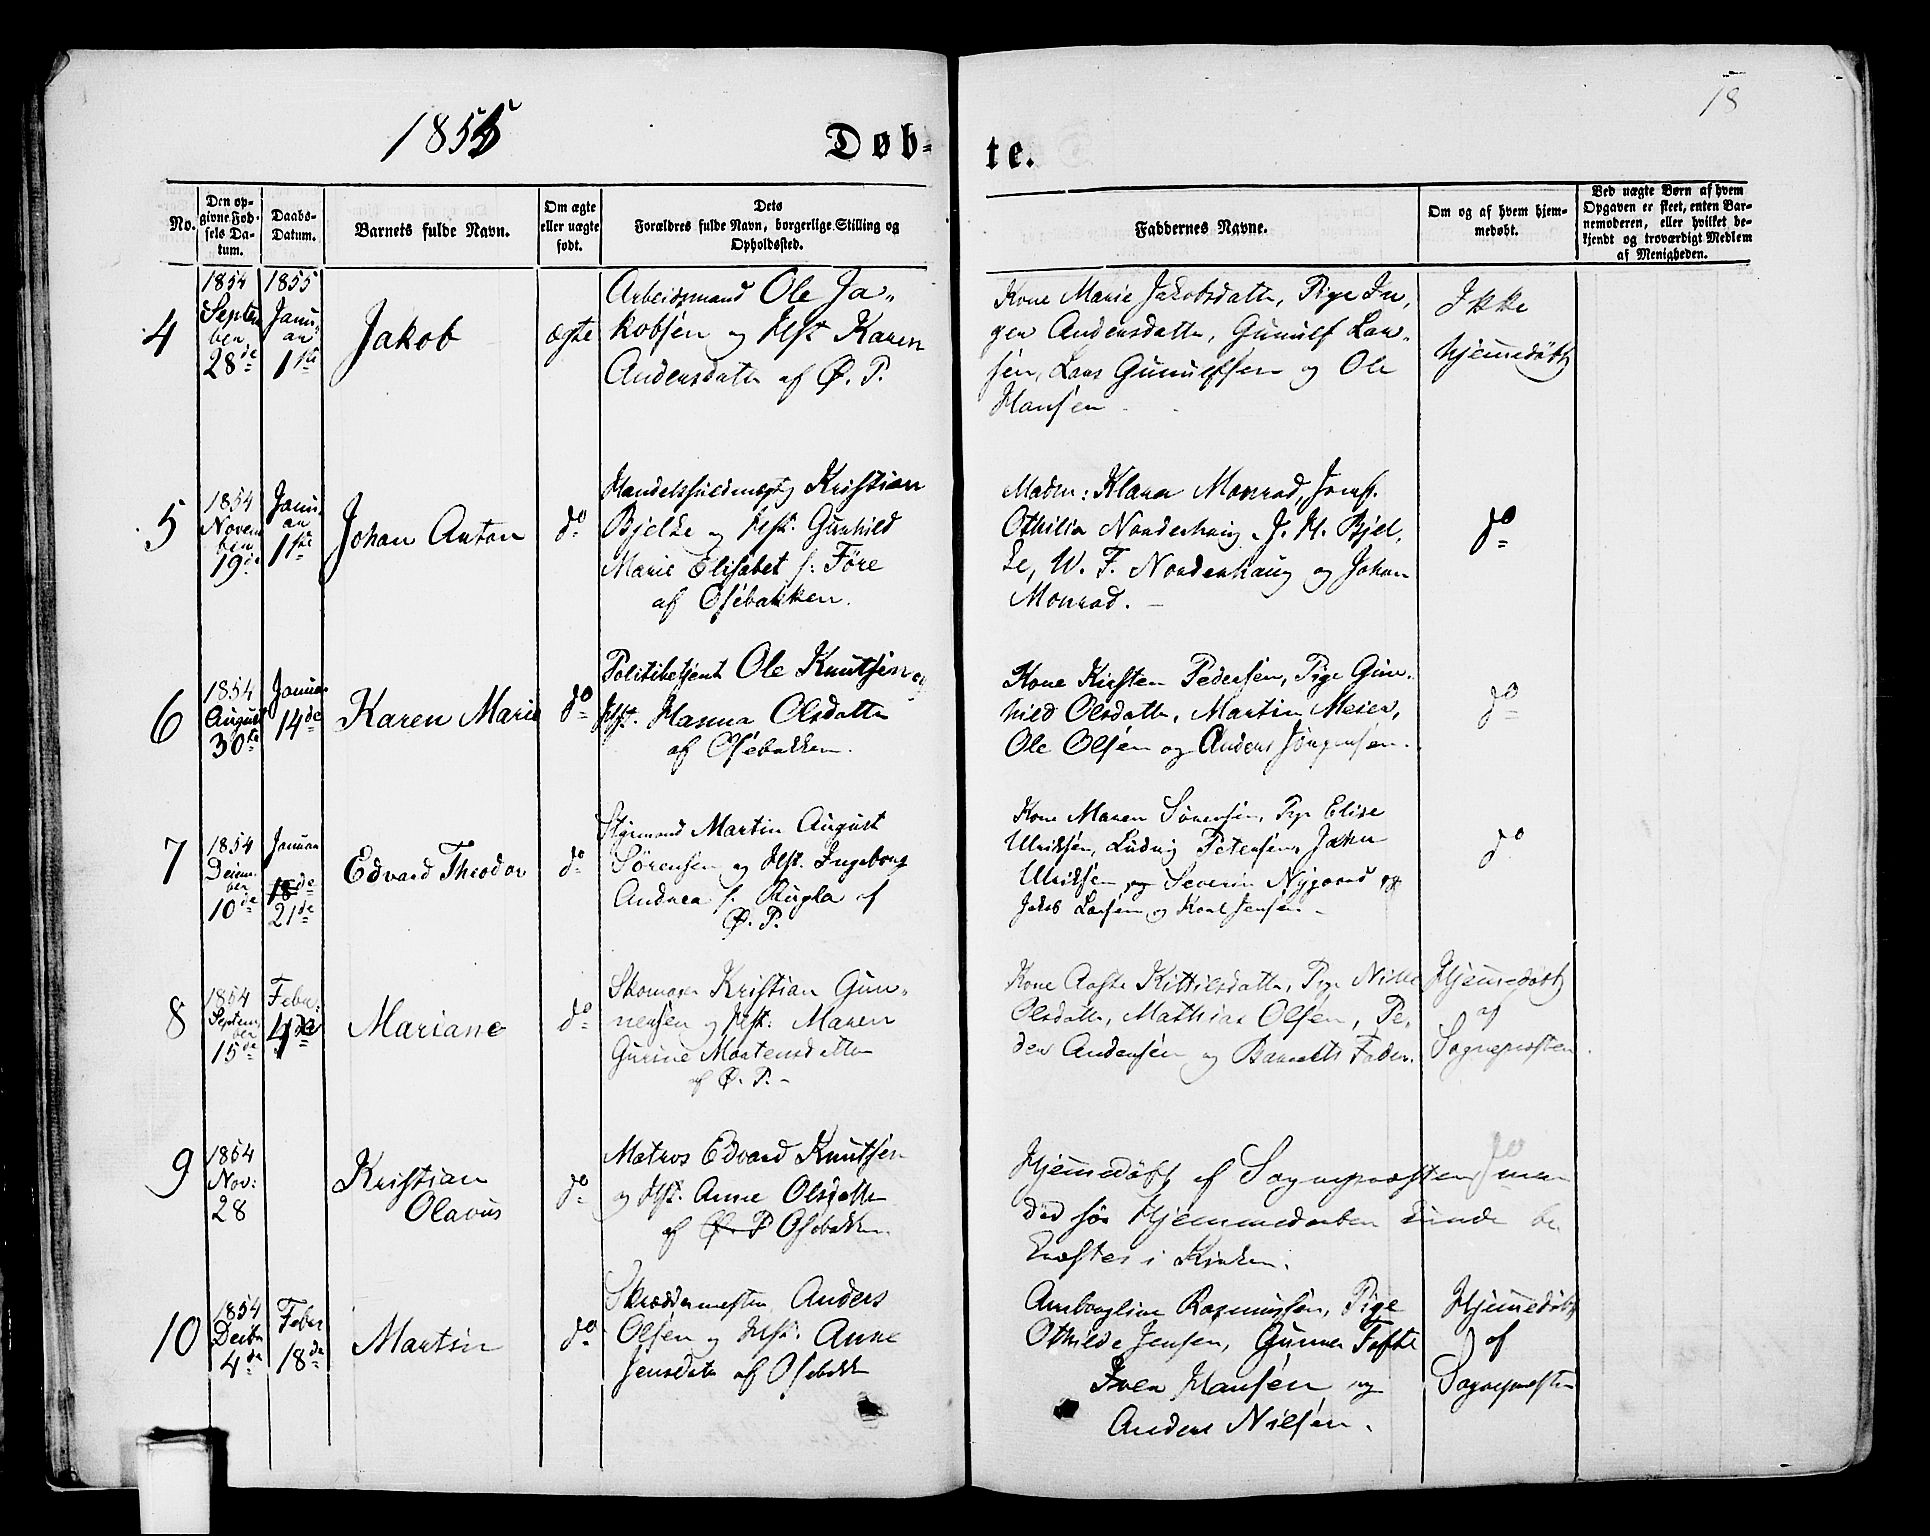 18
1855
Døb-
te.
No.
Den op-
givne Fød-
sels Da-
tum.
Daabs-
Datum.
Barnets fulde Navn.
Om ægte
eller uægte
født.
Dets
Forældres fulde Navn, borgerlige Stilling og
Opholdssted.
Faddernes Navne.
Om og af hvem hjem-
medøbt.
Ved uægte Børn af hvem
Opgaven er skeet, enten Bar-
nemoderen, eller hvilket be-
kjendt og troværdigt Medlem
af Menigheden.
4
1854
Septem
ber
28de
1855
Janu-
ar
1ste
Jakob
ægte
Arbeidsmand Ole Ja-
kobsen og Hst. Karen
Andersdatter af Ø. P.
Kone Marie Jakobsdatter, Pige In-
ger Andersdatter, Gunulf Lar-
sen, Lars Gunulfsen og Ole
Hansen
Ikke
hjemmedøbt
5
1854
Novem
ber
19de
Janu-
ar
1ste
Johan Anton
do
Handelsfuldmægtig Kristian
Bjelke og Hst. Gunhild
Marie Elisabet f. Føre
af Osebakken.
Madm: Klara Monrad, Jomf.
Othilia Norderhaug, J. H. Bjel-
ke, W. F. Norderhaug og Johan
Monrad.
do
6
1854
August
30te
Januar
14de
Karen Marie
do
Politibetjent Ole Knutsen og
Hst. Hanna Olsdatter
af Osebakken.
Kone Kirsten Pedersen, Pige Gun-
hild Olsdatter, Martin Meier,
Ole Olsen og Anders Jørgensen.
do
7
1854
Decem-
ber
10de
Januar
18de
21de
Edvard Theodor
do
Styrmand Martin August
Sørensen og Hst. Ingeborg
Andrea f. Rugla af
Ø. P.
Kone Maren Sørensen, Pige Elise
Ulriksen, Ludvig Petersen, Jakob
Ulriksen og Severin Nygaard og
Jakob Larsen og Karl Jensen
do
8
1854
Septem-
ber
15de
Febru-
4de
Mariane
do
Skomager Kristian Gun-
nersen og Hst. Maren
Gurine Mortensdatter
af Ø. P.
Kone Aaste Kittilsdatter, Pige
Olsdatter, Mathias Olsen, Pe-
der Andersen og Barnets Fader.
Hjemmedøbt
af
Sognepresten
9
1854
Nov:
28
Kristian
Olavus
do
Matros Edvard Knutsen
og Hst. Anne Olsdatter
af Ø. P Osebakken
Hjemmedøbt af Sognepræsten, men
død før Hjemmedaaben kunde be
kræftes i Kirken.
do
10
1854
Decbr
4de
Febr
18de
Martin
do
Skræddermester Anders
Olsen og Hst. Anne
Jensdatter af Osebakk
Rasmussen, Pige
Othilde Jensen, Gunner Tofte
Iver Hansen og
Anders Nilsen.
Hjemmedøbt
af
Sognepresten